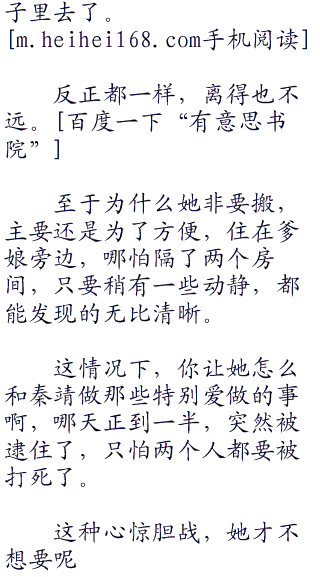 子里去了。
[m.heihei168.com手机阅读]
反正都一样，离得也不
远。[百度一下“有意思书
院”]
至于为什么她非要搬，
主要还是为了方便，住在爹
娘旁边，哪怕隔了两个房
间，只要稍有一些动静，都
能发现的无比清晰。
这情况下，你让她怎么
和秦靖做那些特别爱做的事
啊，哪天正到一半，突然被
逮住了，只怕两个人都要被
打死了。
这种心惊胆战，她才不
想要呢